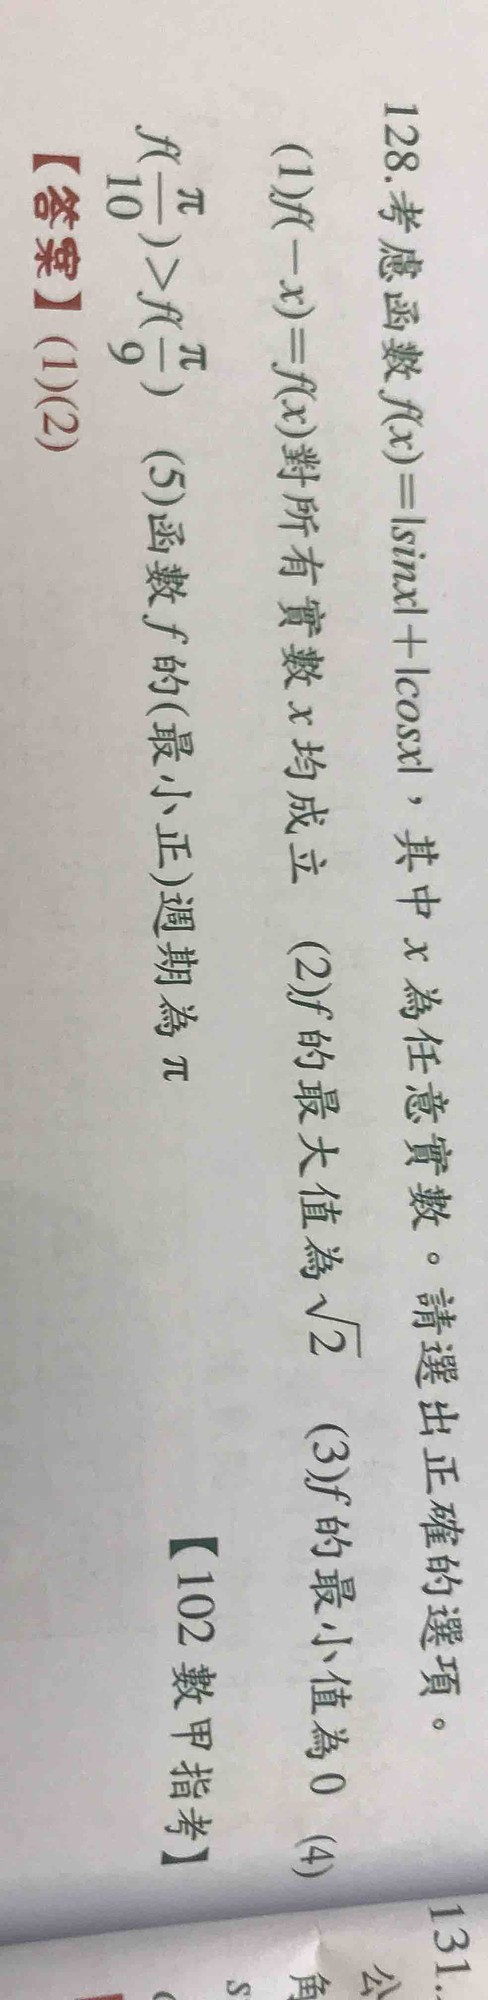 128.考慮函數f(x)=|sinx|+|cosx|，其中x為任意實數。請選出正確的選項。
(1)f(−x)=f(x)對所有實數x均成立 (2)f的最大值為√2 (3)f的最小值為0 (4)
f(π/10)>f(π/9) (5)函數f的(最小正)週期為π 【102數甲指考】
【答案】(1)(2)
131.
公
角
s
(